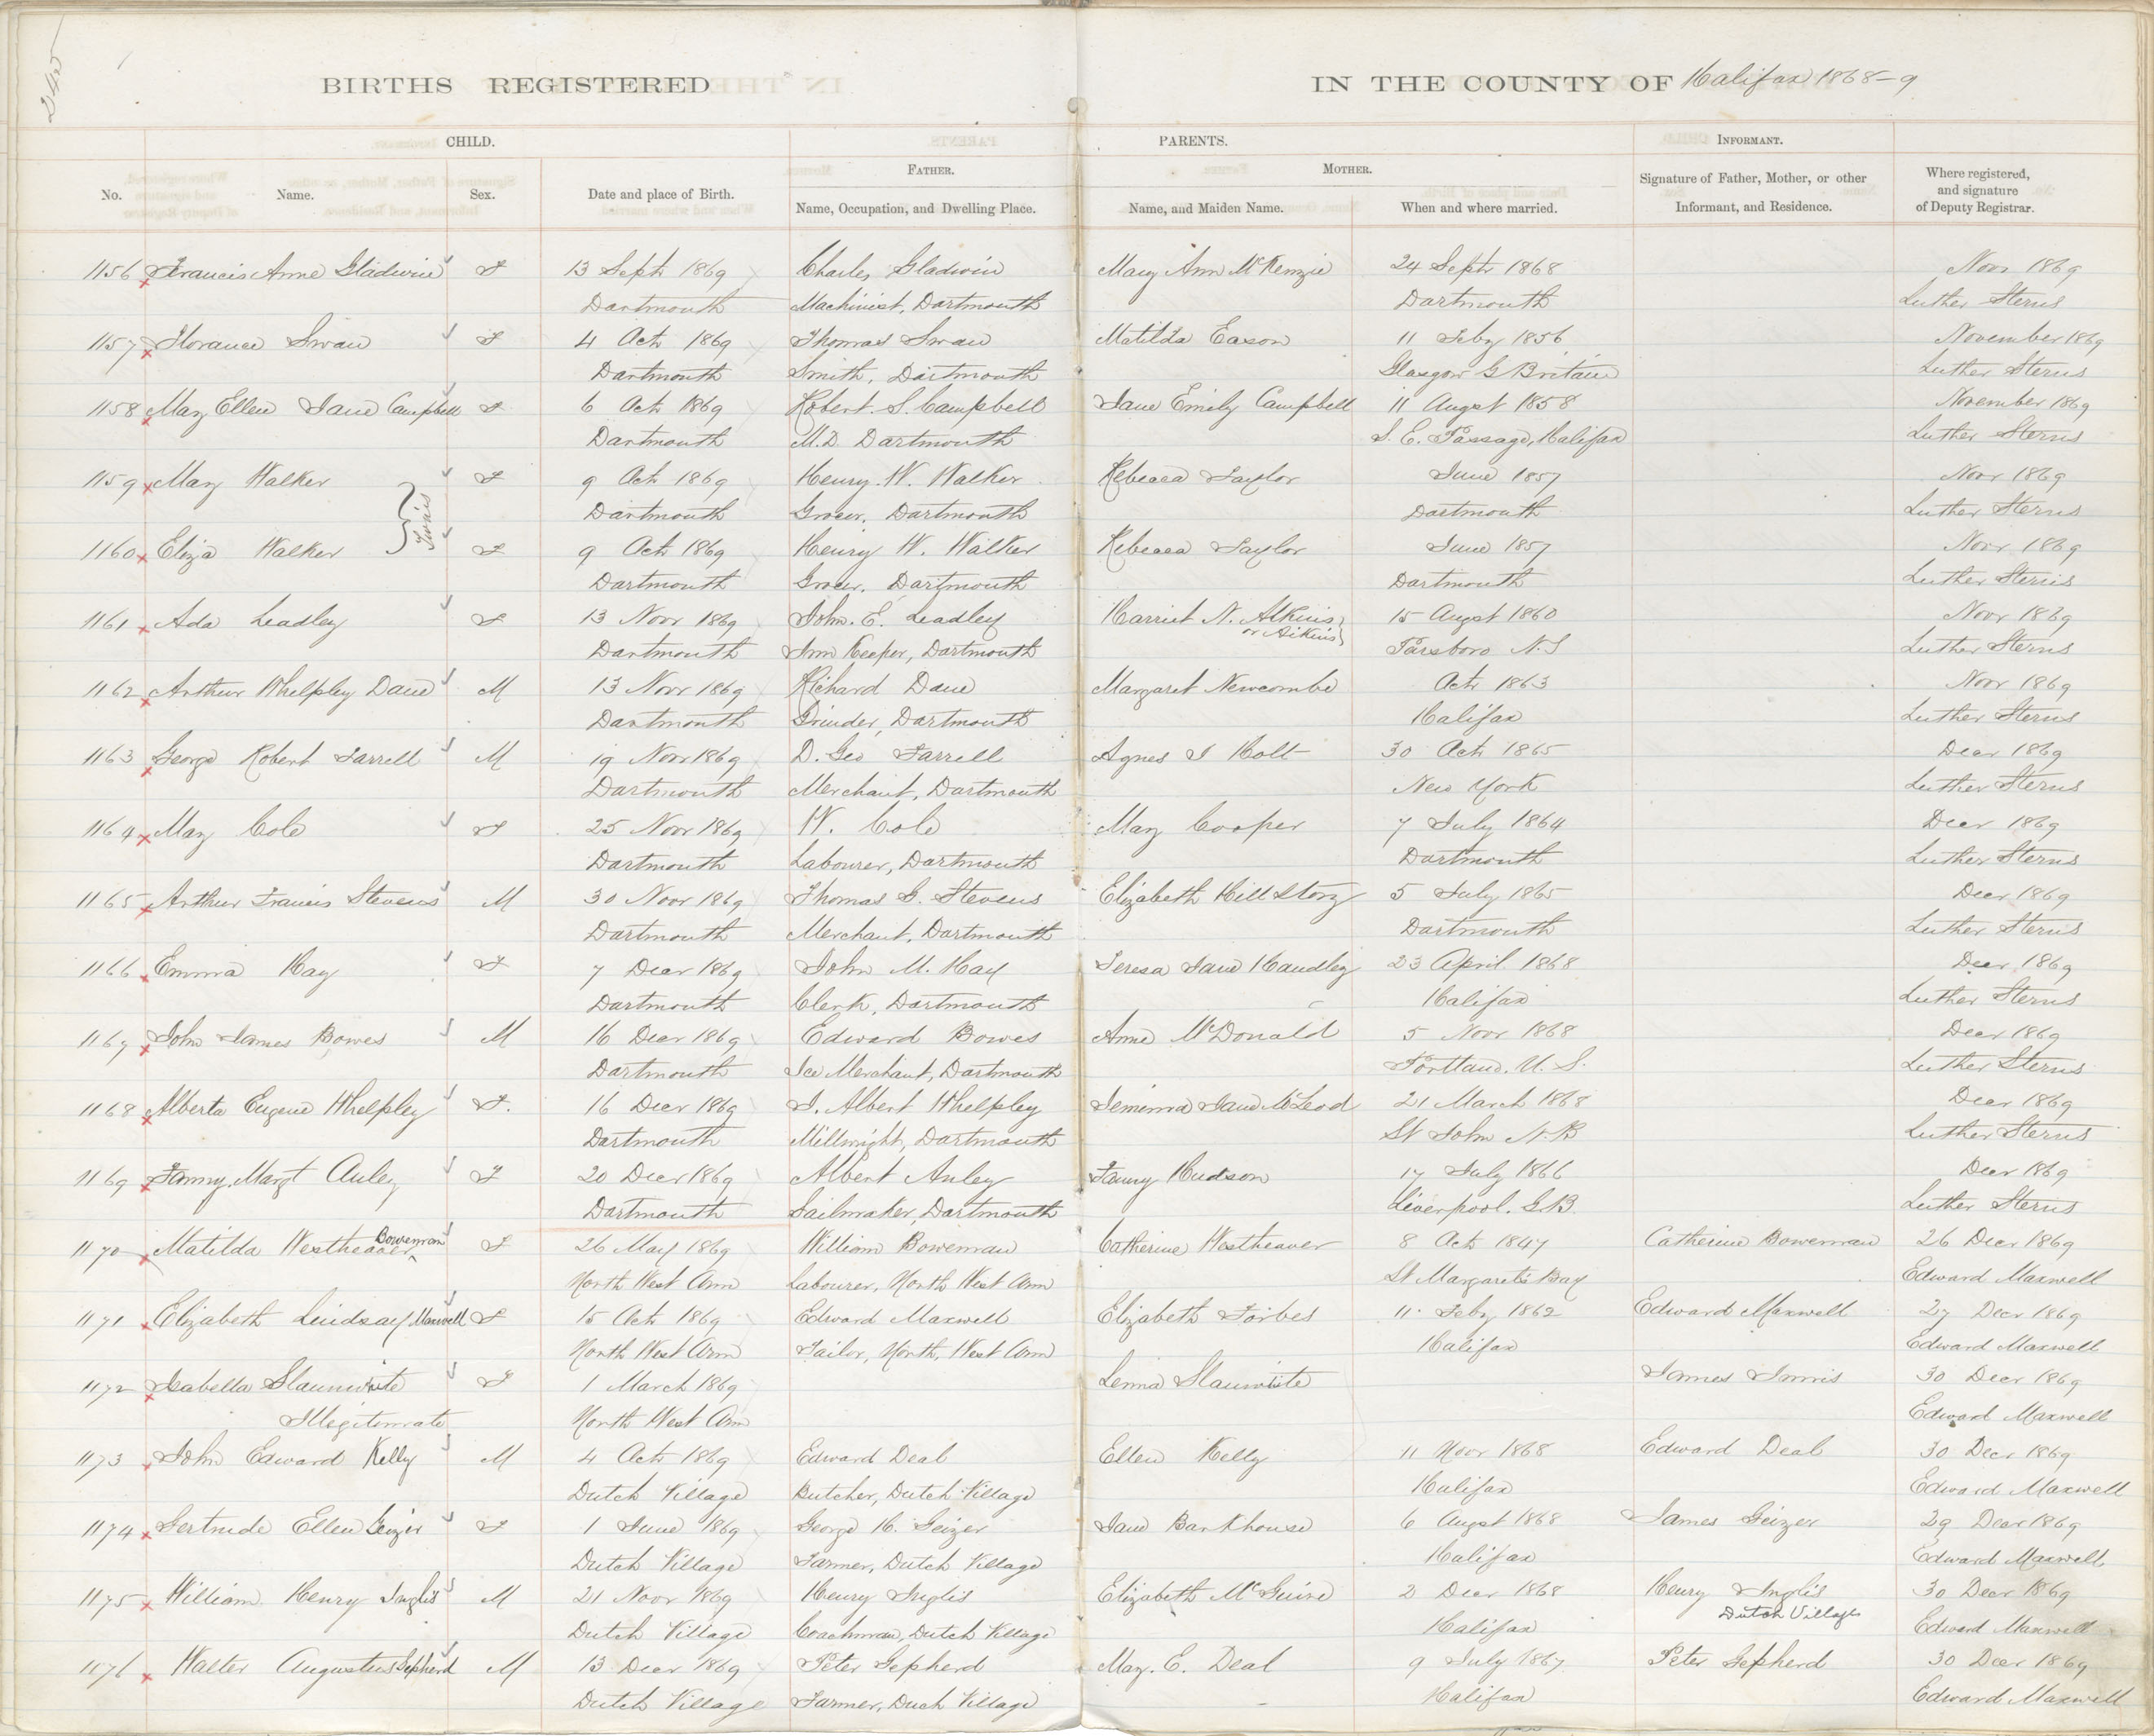 245
BIRTHS REGISTERED IN THE COUNTY OF Halifax 1868-9
CHILD. PARENTS. INFORMANT.
FATHER. MOTHER.
No. Name. Sex. Date and place of Birth. Name, Occupation, and Dwelling Place. Name, and Maiden Name. When and where married. Signature of Father, Mother, or other Informant, and Residence. Where registered, and signature of Deputy Registrar.
1156 Francis Anne Gladwin F 13 Septr 1869 Charles Gladwin Mary Ann McKenzie 24 Septr 1868 Novr 1869
Dartmouth Machinist, Dartmouth Dartmouth Luther Sterns
1157 Florance Swan F 4 Octr 1869 Thomas Swan Matilda Eason 11 Feby 1856 November 1869
Dartmouth Smith, Dartmouth Glasgow G Britain Luther Sterns
1158 Mary Ellen Jane Campbell F 6 Octr 1869 Robert. S. Campbell Jane Emily Campbell 11 Augst 1858 November 1869
Dartmouth M.D Dartmouth S. E. Passage, Halifax Luther Sterns
1159 Mary Walker F 9 Octr 1869 Henry. W. Walker Rebecca Taylor June 1857 Novr 1869
Twins Dartmouth Grocer, Dartmouth Dartmouth Luther Sterns
1160 Eliza Walker F 9 Octr 1869 Henry W. Walker Rebecca Taylor June 1857 Novr 1869
Dartmouth Grocer, Dartmouth Dartmouth Luther Sterns
1161 Ada Leadley F 13 Novr 1869 John. E. Leadley Harriet N. Atkins 15 Augst 1860 Novr 1869
or Aikins
Dartmouth Inn Keeper, Dartmouth Parsboro N.S Luther Sterns
1162 Arthur Whelpley Dane M 13 Novr 1869 Richard Dane Margaret Newcombe Octr 1863 Novr 1869
Dartmouth Grinder, Dartmouth Halifax Luther Sterns
1163 George Robert Farrell M 19 Novr 1869 D. Geo Farrell Agnes I Holt 30 Octr 1865 Decr 1869
Dartmouth Merchant, Dartmouth New York Luther Sterns
1164 Mary Cole F 25 Novr 1869 W. Cole Mary Cooper 7 July 1864 Decr 1869
Dartmouth Labourer, Dartmouth Dartmouth Luther Sterns
1165 Arthur Francis Stevens M 30 Novr 1869 Thomas G. Stevens Elizabeth Hill Story 5 July 1865 Decr 1869
Dartmouth Merchant, Dartmouth Dartmouth Luther Sterns
1166 Emma Hay F 7 Decr 1869 John M. Hay Teresa Jane Handley 23 April 1868 Decr 1869
Dartmouth Clerk, Dartmouth Halifax Luther Sterns
1167 John James Bowes M 16 Decr 1869 Edward Bowes Anne McDonald 5 Novr 1868 Decr 1869
Dartmouth Ice Merchant, Dartmouth Portland. U. S. Luther Sterns
1168 Alberta Eugene Whelpley F. 16 Decr 1869 J. Albert Whelpley Jemima Jane McLeod 21 March 1868 Decr 1869
Dartmouth Millwright, Dartmouth St John N.B Luther Sterns
1169 Fanny Margt Auley F 20 Decr 1869 Albert Auley Fanny Hudson 17 July 1866 Decr 1869
Dartmouth Sailmaker, Dartmouth Liverpool. G.B. Luther Sterns
Boweman
1170 Matilda Westheaver F 26 May 1869 William Boweman Catherine Westheaver 8 Octr 1847 Catherine Boweman 26 Decr 1869
North West Arm Labourer, North West Arm St Margarets Bay Edward Maxwell
1171 Elizabeth Lindsay Maxwell F 15 Octr 1869 Edward Maxwell Elizabeth Forbes 11 Feby 1862 Edward Maxwell 27 Decr 1869
North West Arm Tailor, North, West Arm Halifax Edward Maxwell
1172 Isabella Slaunwite F 1 March 1869 Slaunwite James 30 Decr 1869
Illegitemate North West Arm Edward Maxwell
1173 John Edward Kelly M 4 Octr 1869 Edward Deal Ellen Kelly 11 Novr 1868 Edward Deal 30 Decr 1869
Dutch Village Butcher, Dutch Village Halifax Edward Maxwell
1174 Gertrude Ellen Geizer F 1 June 1869 George H. Geizer Jane Barkhouse 6 Augst 1868 James Geizer 29 Decr 1869
Dutch Village Farmer, Dutch Village Halifax Edward Maxwell
1175 William Henry Inglis M 21 Novr 1869 Henry Inglis Elizabeth McGuire 2 Decr 1868 Henry Inglis 30 Decr 1869
Dutch Village Coachman, Dutch Village Halifax Dutch Village Edward Maxwell
1176 Walter Augustus Sepherd M 13 Decr 1869 Peter Sepherd Mary. E. Deal 9 July 1867 Peter Sepherd 30 Decr 1869
Dutch Village Farmer, Duch Village Halifax Edward Maxwell